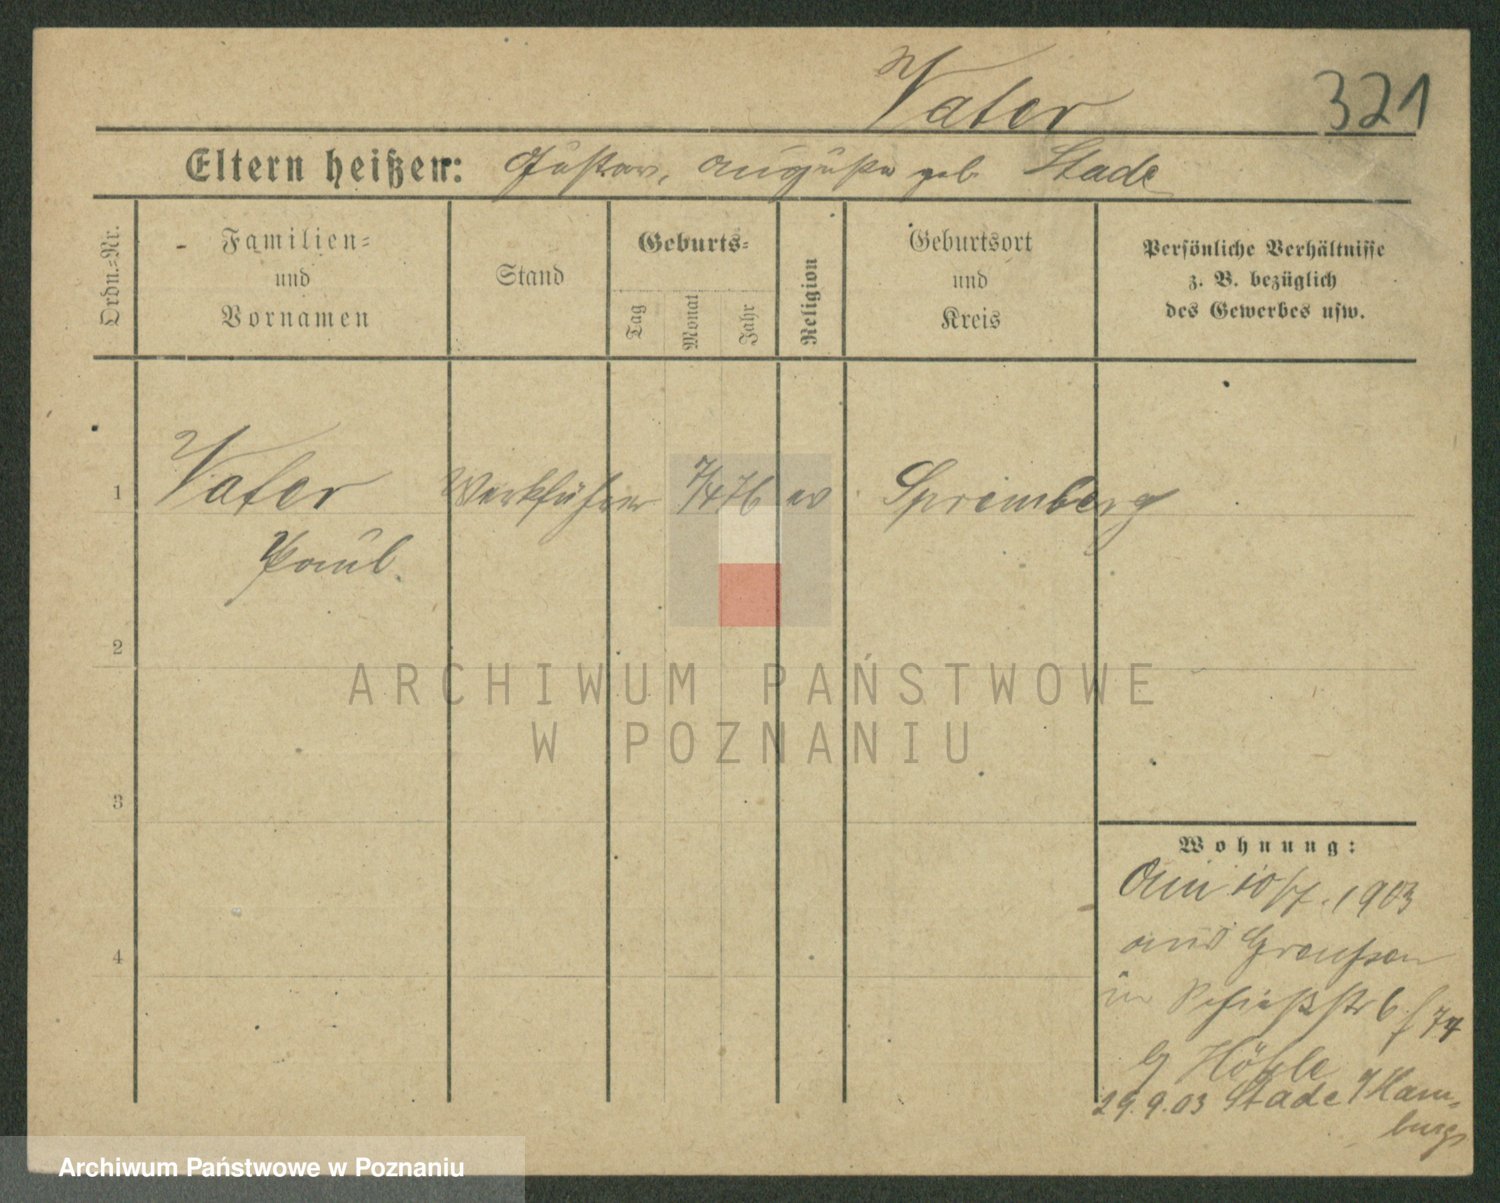 Vater 321
Eltern heißen: Gustav, Auguste geb. Stade
Ordn.-Nr.
Familien-
und
Vornamen
Stand
Geburts-
Tag
Monat
Jahr
Religion
Geburtsort
und
Kreis
Persönliche Verhältnisse
z. B. bezüglich
des Gewerbes usw.
1 Vater Werkführer 7/4 76 ev Spremberg
Paul.
2
3
4
ARCHIWUM PAŃSTWOWE
W POZNANIU
Wohnung:
Am 10/7. 1903
aus Greußen
in Schießstr 6
29.9.03 Stade Ham-
burg
Archiwum Państwowe w Poznaniu